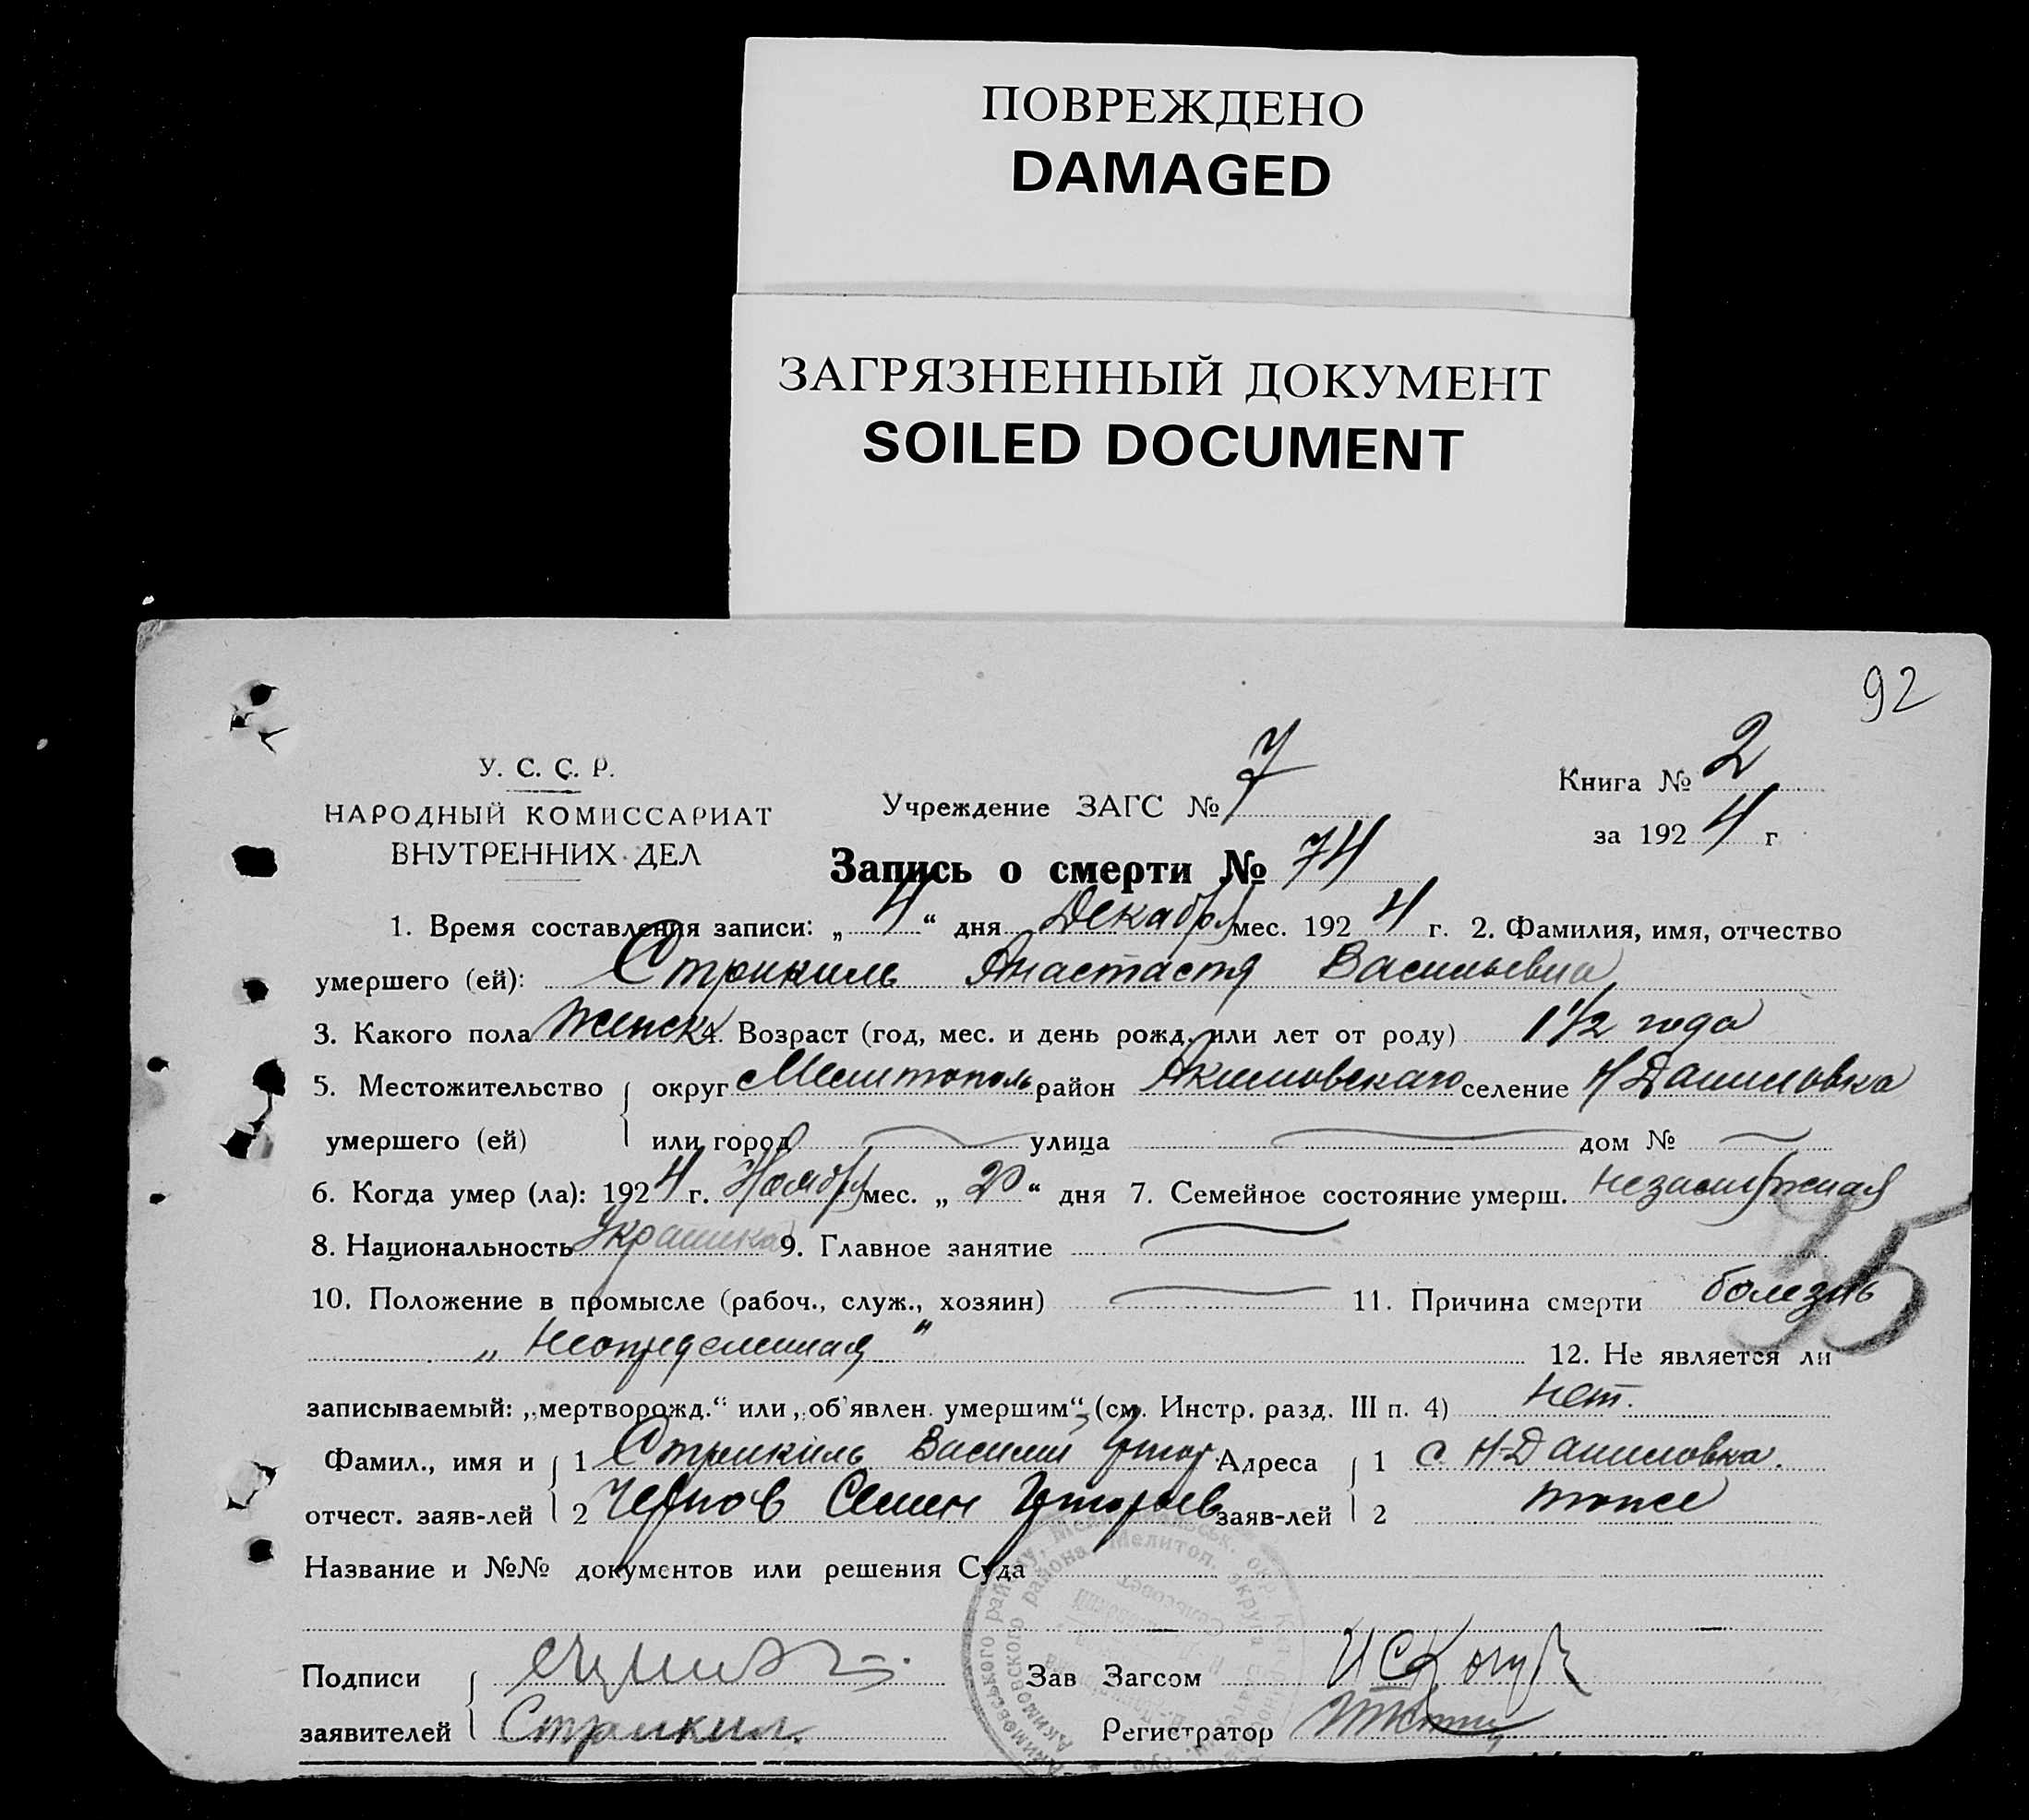 ПОВРЕЖДЕНО
DAMAGED
ЗАГРЯЗНЕННЫЙ ДОКУМЕНТ
SOILED DOCUMENT
92
У. С. С. Р.
НАРОДНЫЙ КОМИССАРИАТ
ВНУТРЕННИХ ДЕЛ
Учреждение ЗАГС № 7
Книга № 2
за 1924 г
Запись о смерти № 74
1. Время составления записи: „4“ дня Декабря мес. 1924 г. 2. Фамилия, имя, отчество
умершего (ей): Стрикиль Анастастя Васильевна
3. Какого пола Женск 4. Возраст (год, мес. и день рожд. или лет от роду) 1 1/2 года
5. Местожительство округ Мелитополь район Акимовскаго селение Н Даниловка
умершего (ей) или город улица дом №
6. Когда умер (ла): 1924 г. Ноября мес. „20“ дня 7. Семейное состояние умерш. незамужная
35
8. Национальность Украинка 9. Главное занятие
10. Положение в промысле (рабоч., служ., хозяин) 11. Причина смерти болезнь
„Неопределенная“ 12. Не является ли
записываемый: „мертворожд.“ или „об'явлен. умершим“ (см. Инстр. разд. III п. 4) нет.
Фамил., имя и 1 Стрикиль Василий Григор Адреса 1 с. Н-Даниловка.
отчест. заяв-лей 2 Чернов Семен Григорьев заяв-лей 2 тоже
Название и №№ документов или решения Суда
Подписи Зав Загсом
заявителей Стрикил. Регистратор